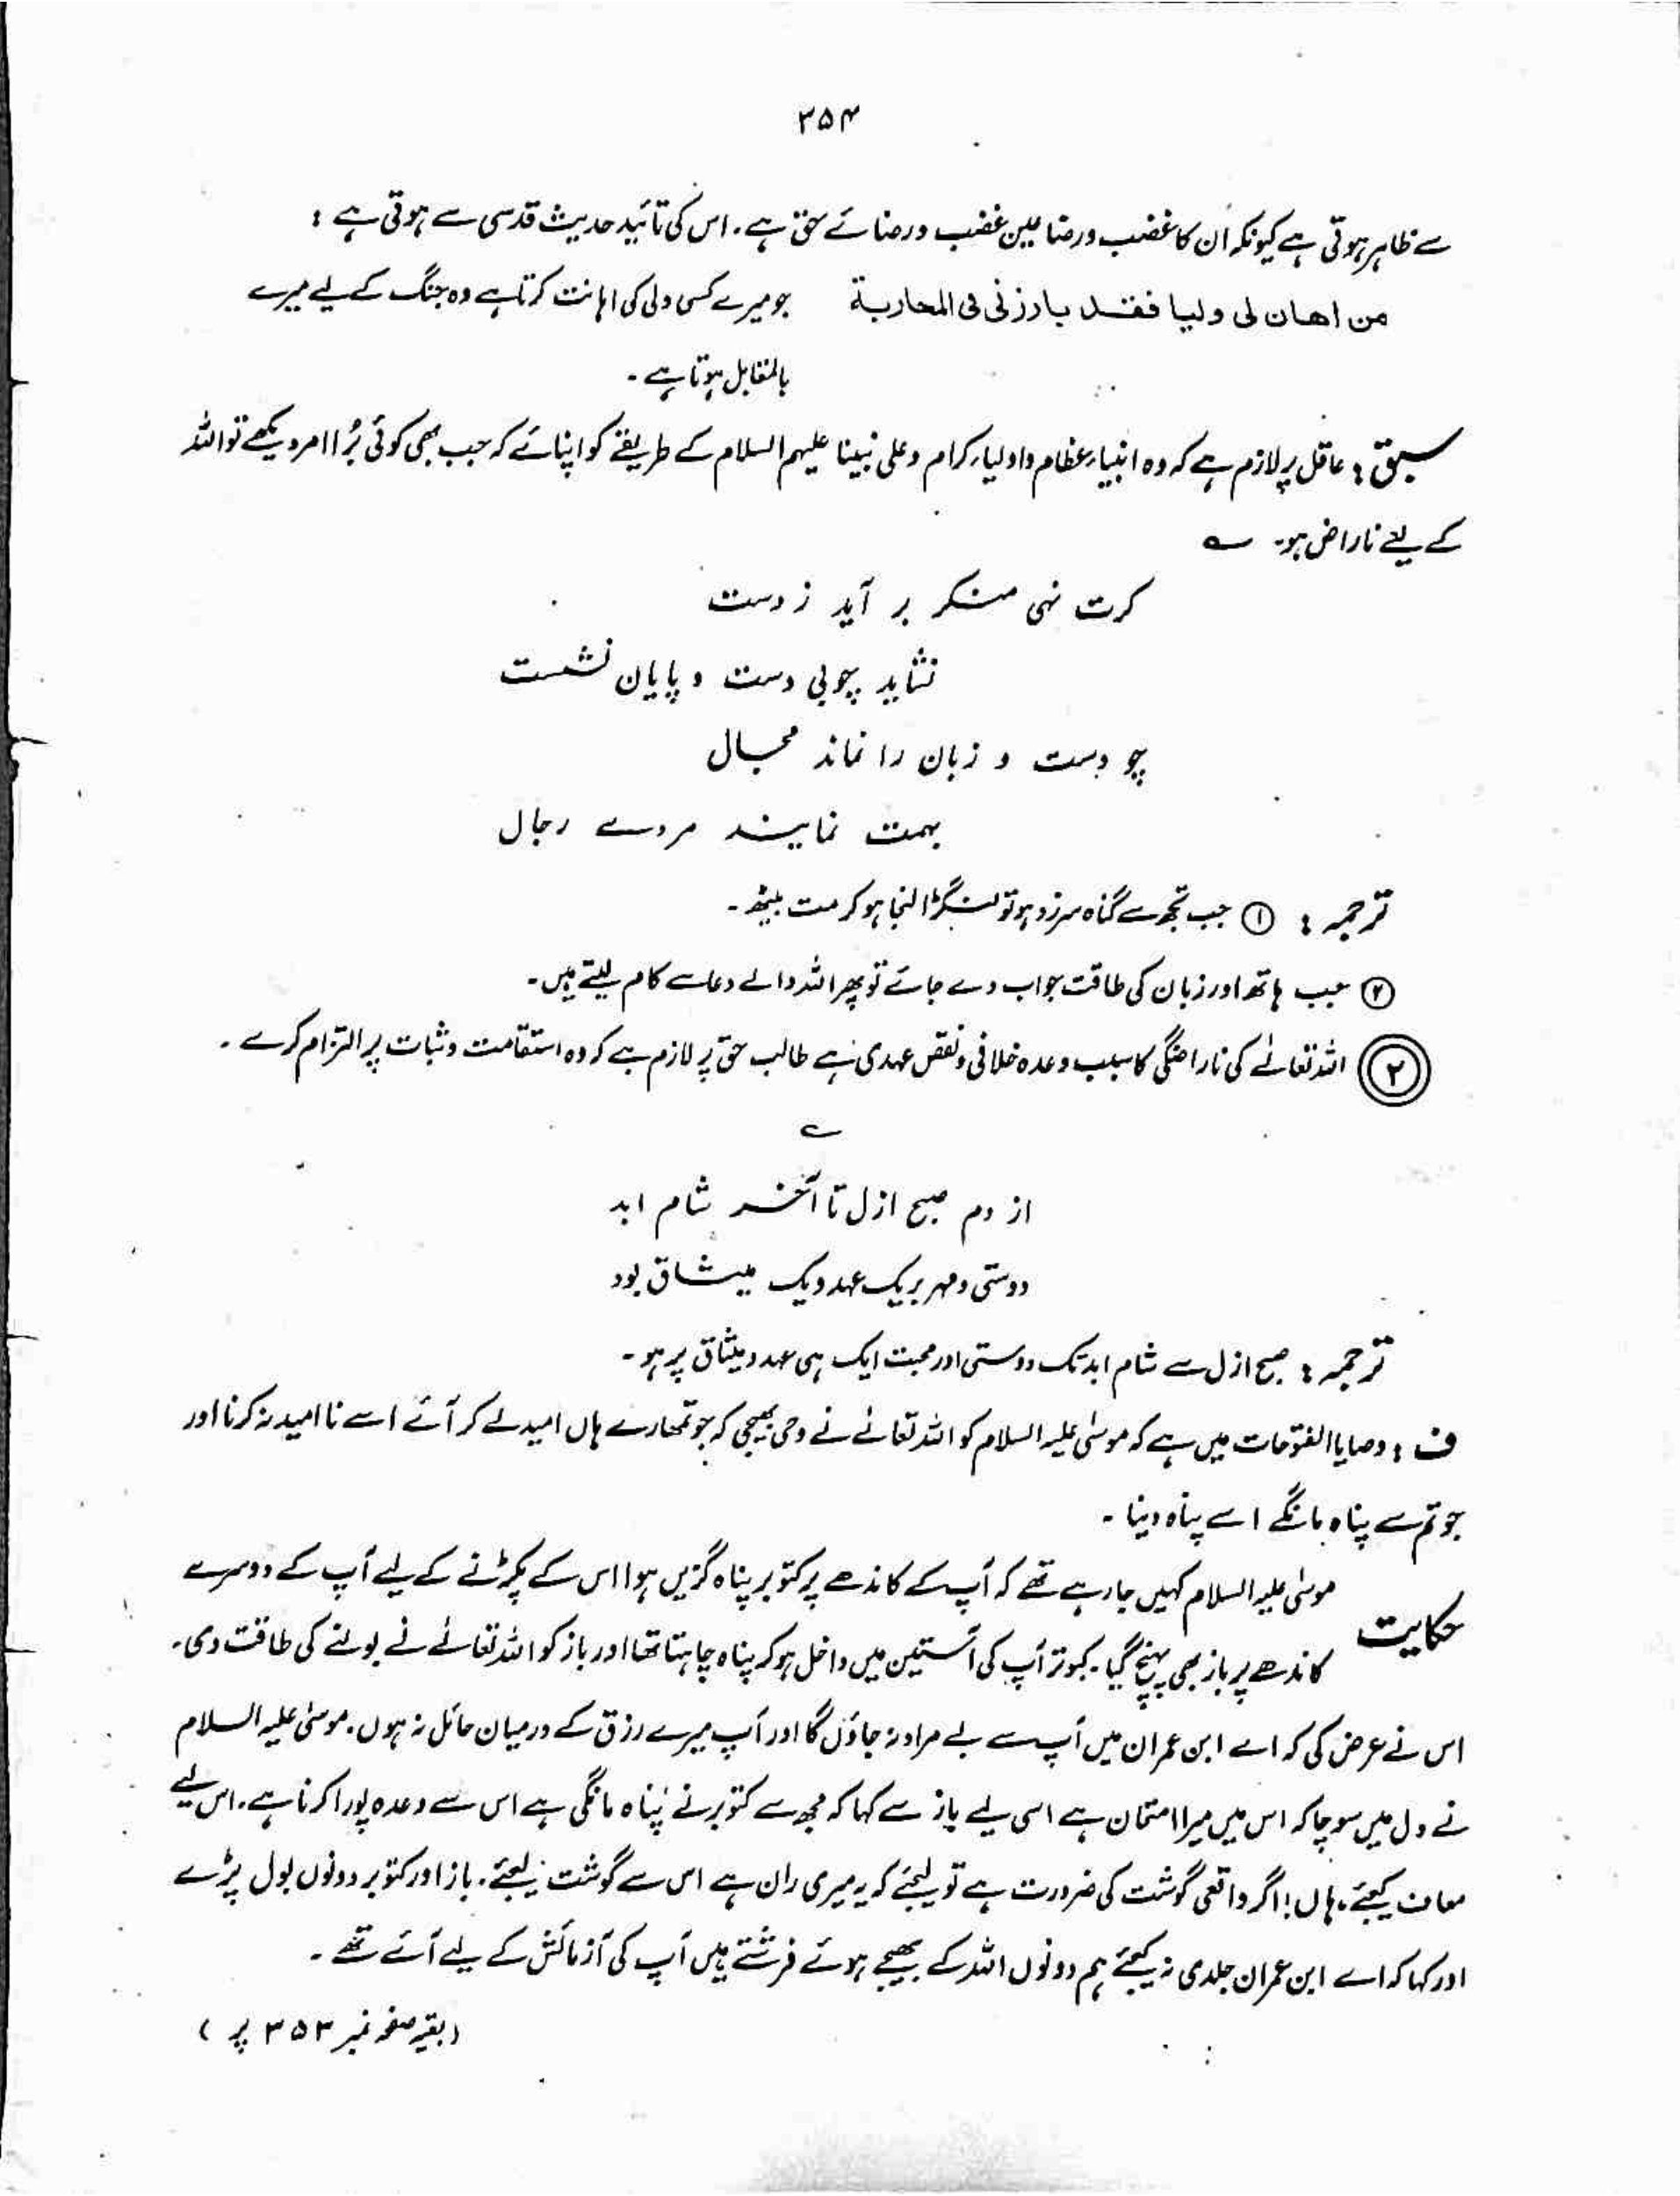 ۳۵۴
سے ظاہر ہوتی ہے کیونکہ ان کا غضب و رضا عین غضب و رضائے حق ہے۔ اس کی تائید حدیث قدسی سے ہوتی ہے :
من اھان لی ولیا فقد بارزنی فی المحاربة جو میرے کسی ولی کی اہانت کرتا ہے وہ جنگ کے لیے میرے
بالمقابل ہوتا ہے۔
سبق : عاقل پر لازم ہے کہ وہ انبیاء عظام و اولیاء کرام و علی نبینا علیہم السلام کے طریقے کو اپنائے کہ جب بھی کوئی بُرا امر دیکھے تو اللہ
کے لیے ناراض ہو۔ ؎
کرت نہی منکر بر آید ز دست
نشاید چوبی دست و پایان نشست
چو دست و زبان را نماند مجال
بہمت نمایند مردے رجال
ترجمہ : ① جب تجھ سے گناہ سرزد ہو تو لنگڑا لنجا ہو کر مت بیٹھ۔
② جب ہاتھ اور زبان کی طاقت جواب دے جائے تو پھر اللہ والے دعا سے کام لیتے ہیں۔
② اللہ تعالےٰ کی ناراضگی کا سبب وعدہ خلافی و نقض عہدی ہے طالب حق پر لازم ہے کہ وہ استقامت و ثبات پر التزام کرے۔
؎
از دم صبح ازل تا آخر شام ابد
دوستی و مہر بریک عہد و یک میثاق بود
ترجمہ : صبح ازل سے شام ابد تک دوستی اور محبت ایک ہی عہد و میثاق پر ہو۔
ف : وصایا الفتوحات میں ہے کہ موسیٰ علیہ السلام کو اللہ تعالےٰ نے وحی بھیجی کہ جو تمھارے ہاں امید لے کر آئے اسے نا امید نہ کرنا اور
جو تم سے پناہ مانگے اسے پناہ دینا۔
حکایت موسیٰ علیہ السلام کہیں جا رہے تھے کہ آپ کے کاندھے پر کتوبر پناہ گزیں ہوا اس کے پکڑنے کے لیے آپ کے دوسرے
کاندھے پر باز بھی پہنچ گیا۔ کبوتر آپ کی آستین میں داخل ہو کر پناہ چاہتا تھا اور باز کو اللہ تعالےٰ نے بولنے کی طاقت دی۔
اس نے عرض کی کہ اے ابن عمران میں آپ سے بے مراد نہ جاؤں گا اور آپ میرے رزق کے درمیان حائل نہ ہوں۔ موسیٰ علیہ السلام
نے دل میں سوچا کہ اس میں میرا امتحان ہے اسی لیے باز سے کہا کہ مجھ سے کتوبر نے پناہ مانگی ہے اس سے وعدہ پورا کرنا ہے۔ اس لیے
معاف کیجئے، ہاں! اگر واقعی گوشت کی ضرورت ہے تو لیجئے کہ یہ میری ران ہے اس سے گوشت لیجئے۔ باز اور کتوبر دونوں بول پڑے
اور کہا کہ اے ابن عمران جلدی نہ کیجئے ہم دونوں اللہ کے بھیجے ہوئے فرشتے ہیں آپ کی آزمائش کے لیے آئے تھے۔
(بقیہ صفحہ نمبر ۳۵۳ پر)